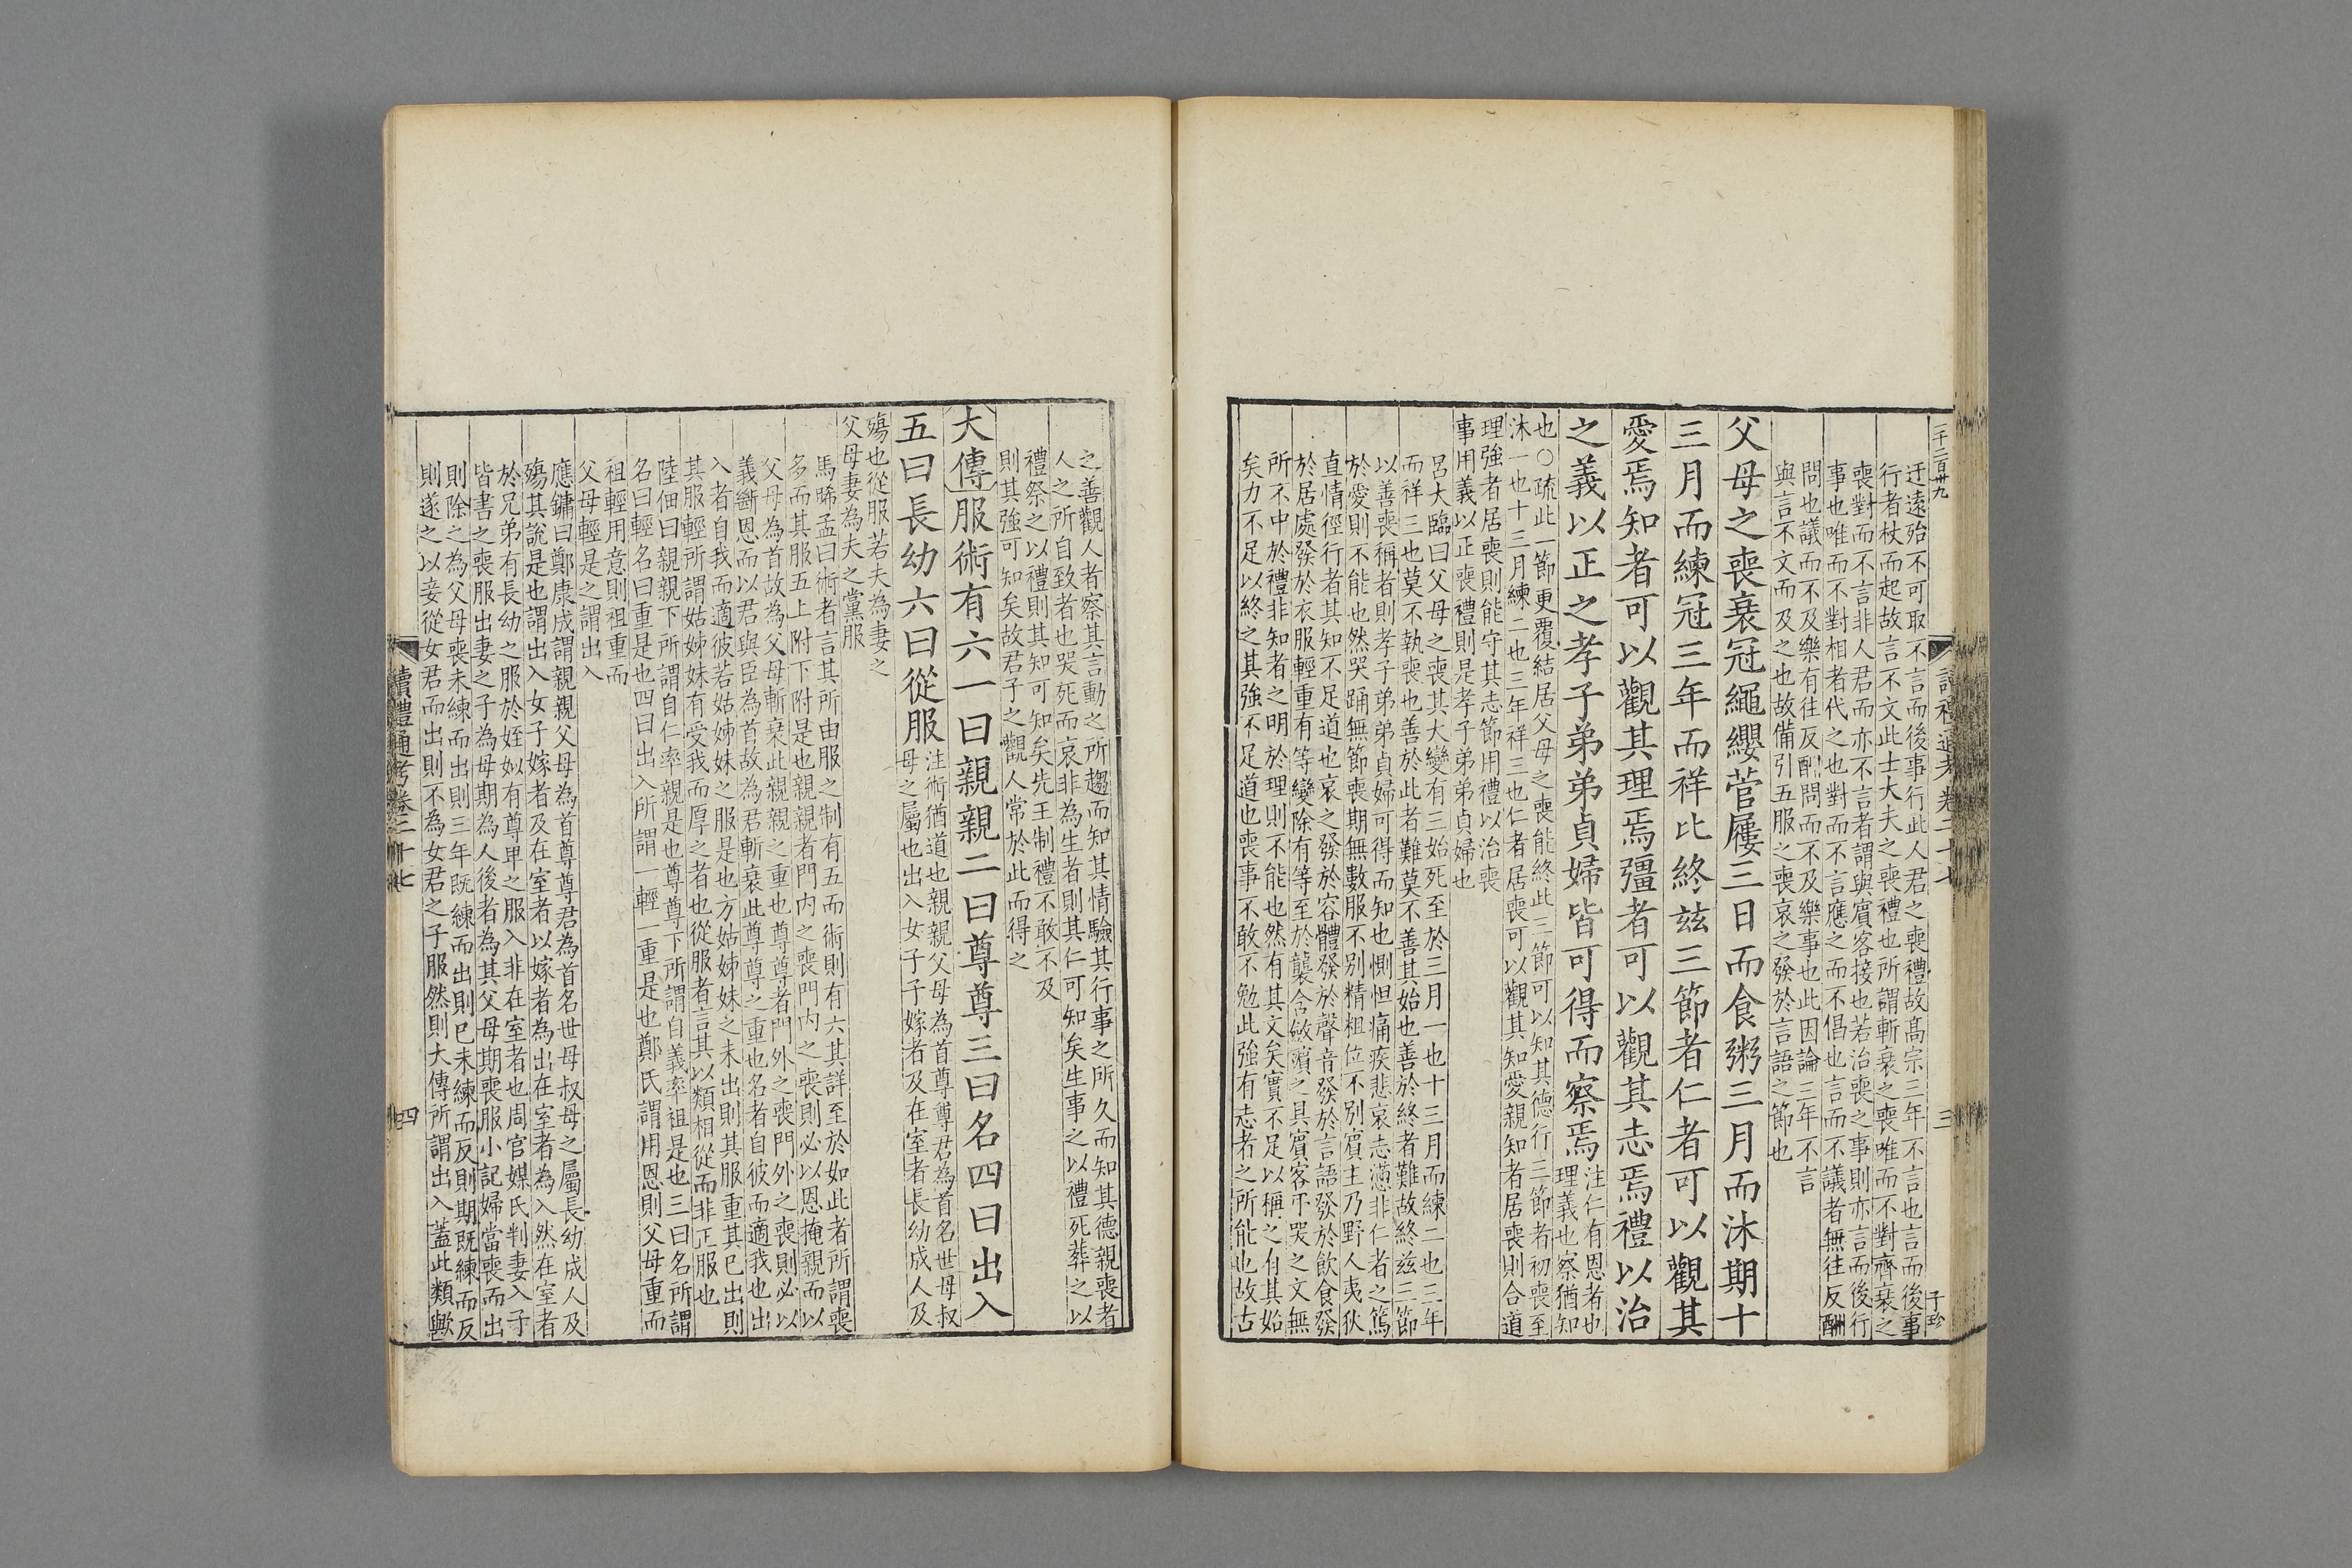 迂遠殆不可取不言而後事行此人君之喪禮故髙宗三年不言也言而後事
行者杖而起故言不文此士大夫之喪禮也所謂斬衰之喪唯而不對齊衰之
喪對而不言非人君而亦不言者謂與賓客接也若治喪之事則亦言而後行
事也唯而不對相者代之也對而不言應之而不倡也言而不議者無往反酬
問也議而不及樂有往反酬問而不及樂事也此因論三年不言
與言不文而及之也故備引五服之喪哀之發於言語之節也
父母之喪衰冠繩纓菅屨三日而食粥三月而沐期十
三月而練冠三年而祥比終兹三節者仁者可以觀其
愛焉知者可以觀其理焉彊者可以觀其志焉禮以治
之義以正之孝子弟弟貞婦皆可得而察焉
注仁有恩者也
理義也察猶知
也○疏此一節更覆結居父母之喪能終此三節可以知其德行三節者初喪至
沐一也十三月練二也三年祥三也仁者居喪可以觀其知愛親知者居喪則合道
理強者居喪則能守其志節用禮以治喪
事用義以正喪禮則是孝子弟弟貞婦也
呂大臨曰父母之喪其大變有三始死至於三月一也十三月而練二也三年
而祥三也莫不執喪也善於此者難莫不善其始也善於終者難故終兹三節
以善喪稱者則孝子弟弟貞婦可得而知也惻怛痛疾悲哀志懣非仁者之篤
於愛則不能也然哭踊無節喪期無數服不别精粗位不别賓主乃野人夷狄
直情徑行者其知不足道也哀之發於容體發於聲音發於言語發於飲食發
於居處發於衣服輕重有等變除有等至於襲含斂殯之具賓客弔哭之文無
所不中於禮非知者之明於理則不能也然有其文矣實不足以稱之自其始
矣力不足以終之其強不足道也喪事不敢不勉此強有志者之所能也故古
三
之善觀人者察其言動之所趨而知其情驗其行事之所久而知其德親喪者
人之所自致者也哭死而哀非為生者則其仁可知矣生事之以禮死葬之以
禮祭之以禮則其知可知矣先王制禮不敢不及
則其強可知矣故君子之觀人常於此而得之
大傳服術有六一曰親親二曰尊尊三曰名四曰出入
五曰長幼六曰從服
注術猶道也親親父母為首尊尊君為首名世母叔
母之屬也出入女子子嫁者及在室者長幼成人及
殤也從服若夫為妻之
父母妻為夫之黨服
馬晞孟曰術者言其所由服之制有五而術則有六其詳至於如此者所謂喪
多而其服五上附下附是也親親者門内之喪門内之喪則必以恩掩親而以
父母為首故為父母斬衰此親親之重也尊尊者門外之喪門外之喪則必以
義斷恩而以君與臣為首故為君斬衰此尊尊之重也名者自彼而適我也出
入者自我而適彼若姑姊妹之服是也方姑姊妹之未出則其服重其已出則
其服輕所謂姑姊妹有受我而厚之者也從服者言其以類相從而非正服也
陸佃曰親親下所謂自仁率親是也尊尊下所謂自義率祖是也三曰名所謂
名曰輕名曰重是也四曰出入所謂一輕一重是也鄭氏謂用恩則父母重而
祖輕用意則祖重而
父母輕是之謂出入
應鏞曰鄭康成謂親親父母為首尊尊君為首名世母叔母之屬長幼成人及
殤其說是也謂出入女子嫁者及在室者以嫁者為出在室者為入然在室者
於兄弟有長幼之服於姪姒有尊卑之服入非在室者也周官媒氏判妻入子
皆書之喪服出妻之子為母期為人後者為其父母期喪服小記婦當喪而出
則除之為父母喪未練而出則三年既練而出則已未練而反則期既練而反
則遂之以妾從女君而出則不為女君之子服然則大傳所謂出入蓋此類歟
讀禮通考卷二十七
四